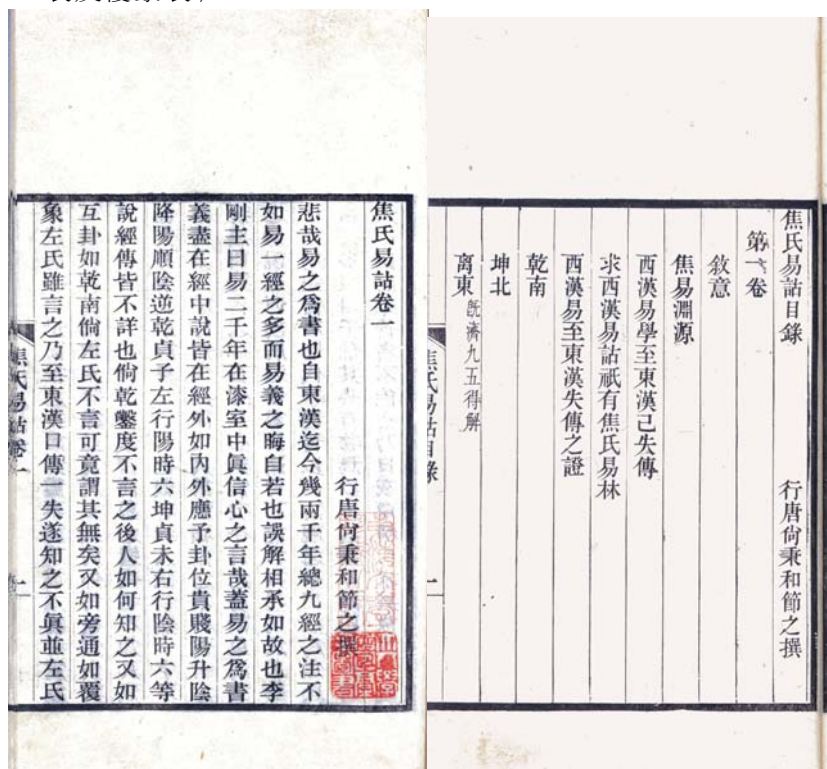 焦氏易詁目錄
行唐尙秉和節之撰
第一卷
敘意
焦易淵源
西漢易學至東漢已失傳
求西漢易詁祇有焦氏易林
西漢易至東漢失傳之證
乾南
坤北
离東 旣濟九五得解
焦氏易詁目錄
一
焦氏易詁卷一
行唐尙秉和節之撰
悲哉易之爲書也自東漢迄今幾兩千年總九經之注不
如易一經之多而易義之晦自若也誤解相承如故也李
剛主曰易二千年在漆室中眞信心之言哉蓋易之爲書
義盡在經中說皆在經外如內外應予卦位貴賤陽升陰
降陽順陰逆乾貞子左行陽時六坤貞未右行陰時六等
說經傳皆不詳也倘乾鑿度不言之後人如何知之又如
互卦如乾南倘左氏不言可竟謂其無矣又如旁通如覆
象左氏雖言之乃至東漢口傳一失遂知之不眞並左氏
焦氏易詁卷一
一